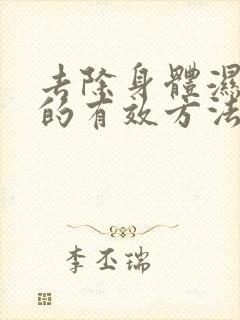 去除身體濕
的有效方法
李丕瑞